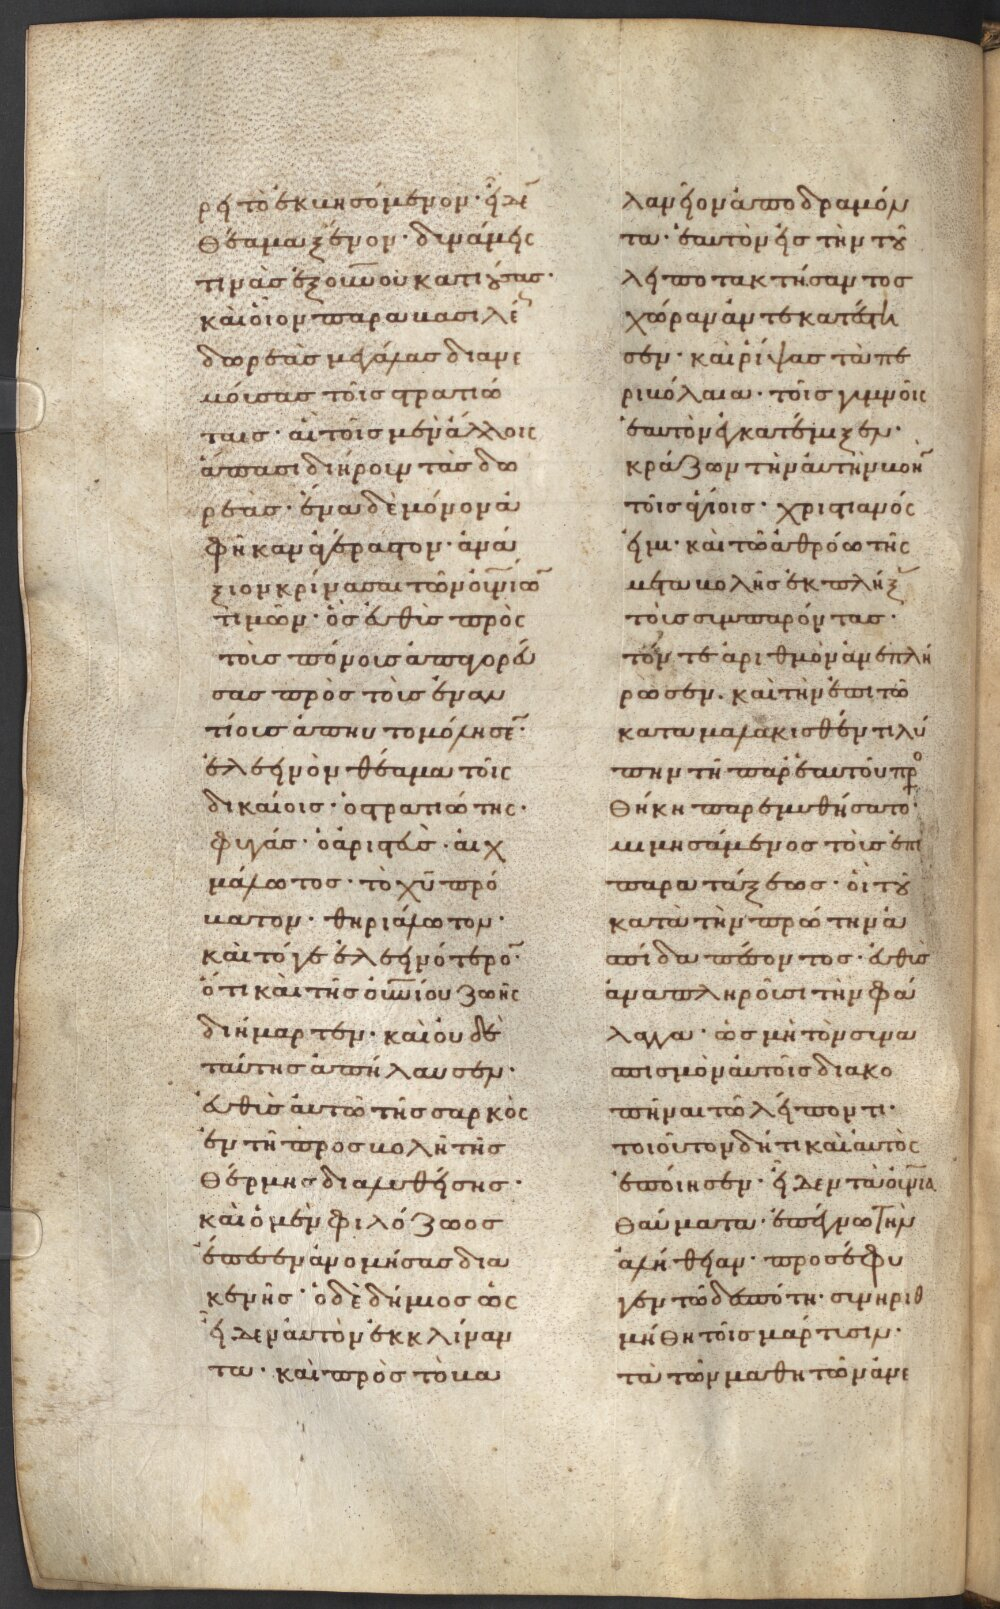 ρει τὸ ἐκβησόμενον· εἶδε
θέαμα ξένον· δυνάμεις
τινὰς ἐξ οὐνοῦ κατιούσας·
καὶ οἷον παρα βασιλέ
δωρεὰς μεγάλας διανε
μούσας τοῖς στρατιώ
ταις· αἳ τοῖς μὲν ἄλλοις
ἅπασι διήρουν τὰς δω
ρεάς· ἕνα δὲ μόνον ἀ
φῆκαν ἀγέραστον· ἀνά
ξιον κρίνασαι τῶν οὐνίω
τιμῶν· ὃς εὐθὺς πρὸς
τοὺς πόνους ἀπαγορεύ
σας πρὸς τοὺς ἐναν
τίους ἀπηυτομόλησε·
ἐλεεινὸν θέαμα τοῖς
δικαίοις· ὁ στρατιώτης·
φυγάς· ὁ ἀριστεὺς· αἰχ
μάλωτος· τὸ χῦ πρό
βατον· θηριάλωτον·
καὶ τό γε ἐλεεινότερο·
ὅτι καὶ τῆς αἰωνίου ζωῆς
διήμαρτεν· καὶ οὐδὲ
ταύτης ἀπήλαυσεν·
εὐθὺς αὐτῶ τῆς σαρκὸς
ἐν τῆ προσβολῆ τῆς
θέρμης διαλυθείσης·
καὶ ὁ μὲν φιλόζωος
ἔπεσεν ἀνομήσας δια
κενῆς· ὁ δὲ δήμιος ὡς
εἶδεν αὐτὸν ἐκκλίναν
τα· καὶ πρὸς τὸ βα
λανεῖον ἀποδραμόν
τα· ἑαυτὸν εἰς τὴν τοῦ
λειποτακτήσαντος
χώραν ἀντεκατέστη
σεν· καὶ ῥίψας τὰ πε
ριβόλαια· τοῖς γυμνοῖς
ἑαυτὸν ἐγκατέμιξεν·
κράζων τὴν αὐτὴν φωνὴ
τοῖς ἁγίοις· χριστιανός
εἰμι· καὶ τῶ ἀθρόω τῆς
μεταβολῆς ἐκπλήξ
τοὺς συμπαρόντας·
τόν τε ἀριθμὸν ἀνεπλή
ρωσεν· καὶ τὴν ἐπι τῶ
καταμαλακισθέντι λύ
πην τῆ παρ ἑαυτοῦ προ
θήκη παρεμυθήσατο·
μιμησάμενος τοὺς ἐπι
παρατάξεως· οἳ τοῦ
κατὰ τὴν πρώτην ἀ
σπίδα πεσόντος· εὐθὺς
ἀναπληροῦσι τὴν φά
λαγγα· ὡς μὴ τὸν συνα
σπισμὸν αὐτοῖς διακο
πῆναι τῶ λείποντι·
τοιοῦτον δή τι καὶ αὐτὸς
ἐποίησεν· εἶδεν τὰ οὐνια
θαύματα· ἐπέγνω τὴν
ἀλήθειαν· προσέφυ
γεν τῶ δεσπότη· συνηριθ
μήθη τοῖς μάρτυσιν·
τὰ τῶν μαθητῶν ἀνε